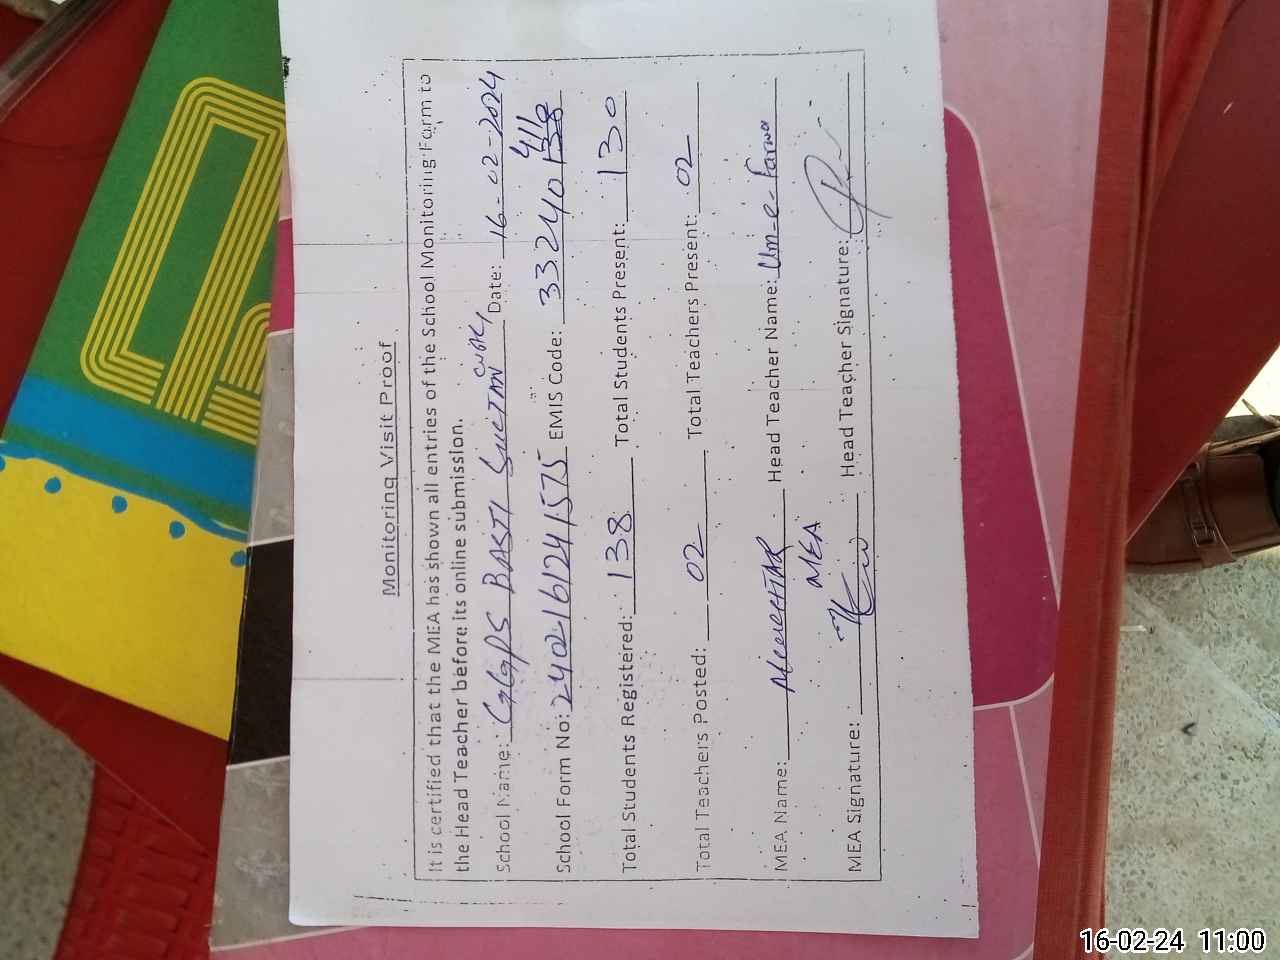 Monitoring Visit Proof
It is certified that the MEA has shown all entries of the School Monitoring Form to
the Head Teacher before its online submission.
School Name: GGPS BASTI SULTAN Date: 16-02-2024
School Form No: 2402161241575 EMIS Code: 33240 138 411
Total Students Registered: 138 Total Students Present: 130
Total Teachers Posted: 02 Total Teachers Present: 02
MEA Name: Head Teacher Name: Um-e-Farwa
MEA
MEA Signature: Head Teacher Signature:
16-02-24 11:00